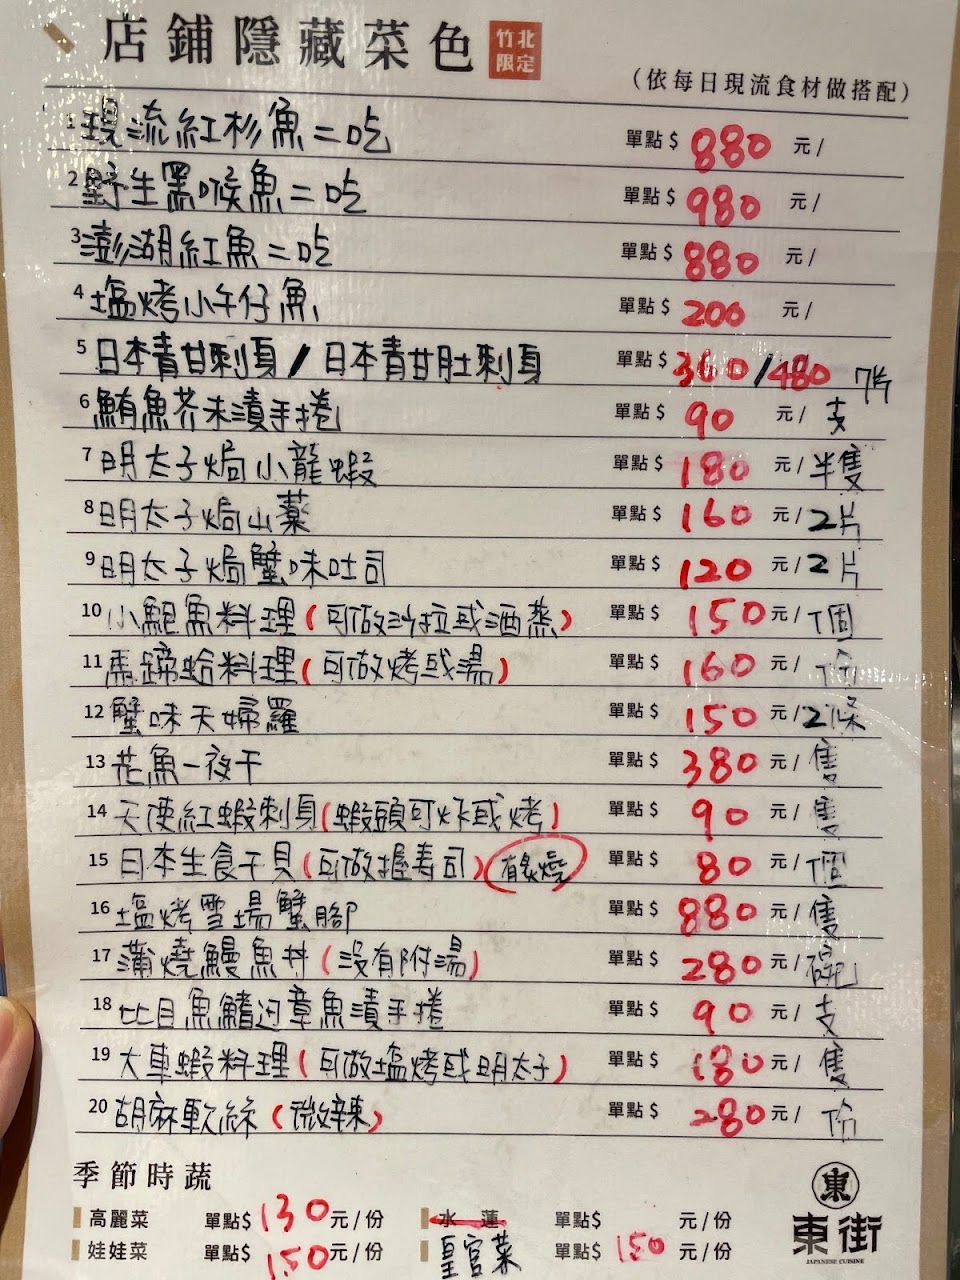 店鋪隱藏菜色 竹北限定
（依每日現流食材做搭配）
1 現流紅杉魚二吃 單點 $ 880 元 /
2 野生黑喉魚二吃 單點 $ 980 元 /
3 澎湖紅魚二吃 單點 $ 880 元 /
4 塩烤小午仔魚 單點 $ 200 元 /
5 日本青甘刺身 / 日本青甘肚刺身 單點 $ 360 / 480 7片
6 鮪魚芥末漬手捲 單點 $ 90 元 / 支
7 明太子焗小龍蝦 單點 $ 180 元 / 半隻
8 明太子焗山藥 單點 $ 160 元 / 2片
9 明太子焗蟹味吐司 單點 $ 120 元 / 2片
10 小鮑魚料理(可做沙拉或酒蒸) 單點 $ 150 元 / 1個
11 馬蹄蛤料理(可做烤或湯) 單點 $ 160 元 / 份
12 蟹味天婦羅 單點 $ 150 元 / 2條
13 花魚一夜干 單點 $ 380 元 / 隻
14 天使紅蝦刺身(蝦頭可炸或烤) 單點 $ 90 元 / 隻
15 日本生食干貝(可做握寿司) 有炙燒 單點 $ 80 元 / 1個
16 塩烤雪場蟹腳 單點 $ 880 元 / 隻
17 蒲燒鰻魚丼(沒有附湯) 單點 $ 280 元 / 碗
18 比目魚鰭迅章魚漬手捲 單點 $ 90 元 / 支
19 大車蝦料理(可做塩烤或明太子) 單點 $ 180 元 / 隻
20 胡麻軟絲(微辣) 單點 $ 280 元 / 份
季節時蔬
高麗菜 單點$ 130 元 / 份 水蓮 單點$ 元 / 份
娃娃菜 單點$ 150 元 / 份 皇宮菜 單點$ 150 元 / 份
東
東街
JAPANESE CUISINE